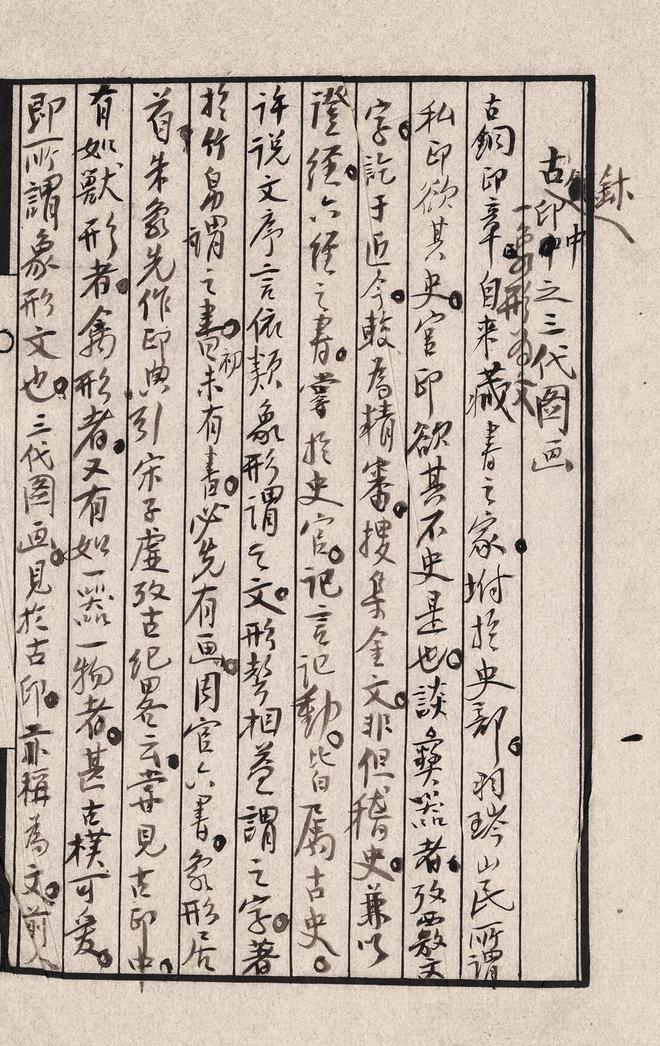 鉨
中
古印中之三代图画
一象形為文
古銅印章自来藏書之家坿於史部羽琌山民所謂
私印欲其史官印欲其不史是也談彝器者攷覈文
字訖于近今較為精審搜集金文非但稽史兼以
證經六經之書掌於史官記言記動皆属古史
许说文序言依類象形謂之文形聲相益謂之字著
於竹帛謂之書初未有書必先有画周官六書象形居
首朱象先作印典引宋子虚攷古纪畧云嘗見古印中
有如獸形者禽形者又有如一器一物者甚古樸可爱
即所謂象形文也三代图画見於古印亦稱為文前人